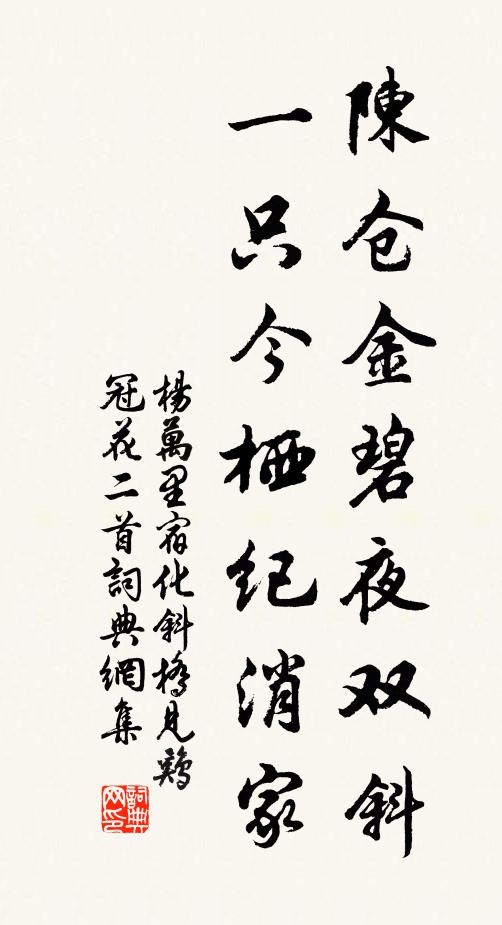 陳仓金碧夜双斜
一只今栖纪消家
楊萬里宿化斜橋見鷄
冠花二首詞典網集
詞典网印